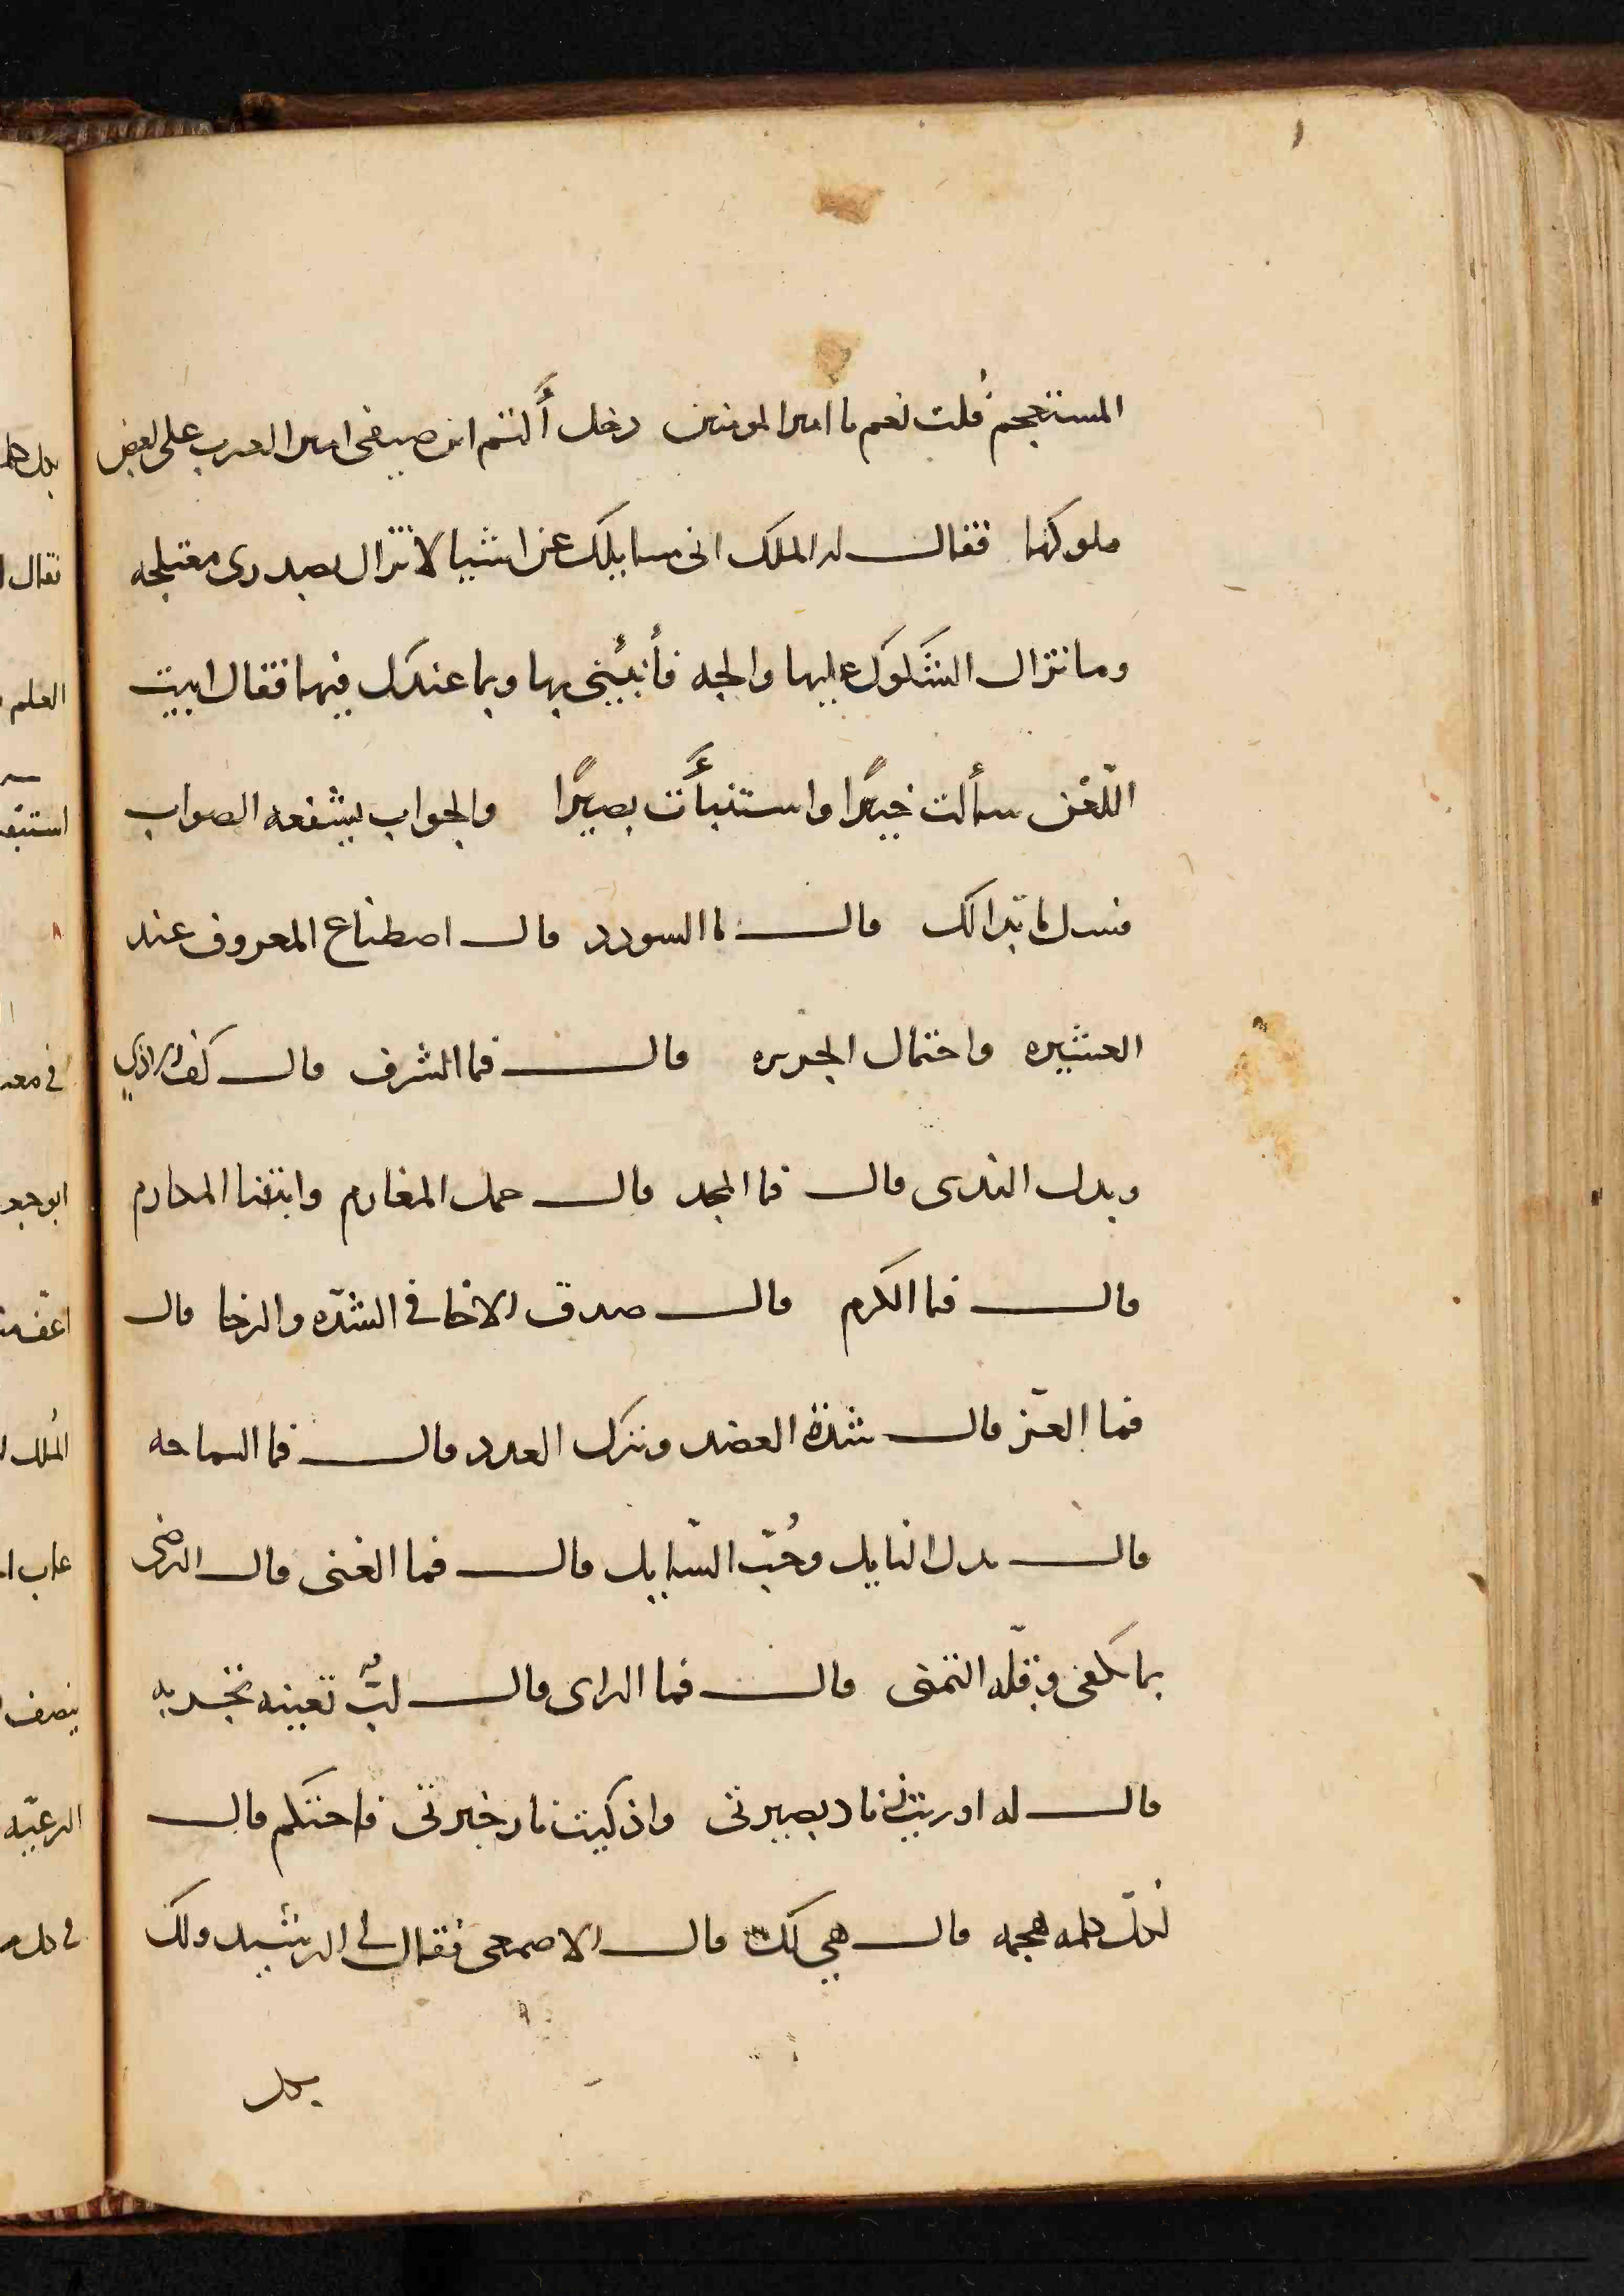 المستعجم قلت نعم يا امير المومنين دخل أكثم ابن صيفي امير العرب على بعض
ملوكها فقال له الملك اني سايلك عن اشيا لا تزال بصدري معتلجه
وما تزال الشكوك عليها والجه فأنبئني بها وبما عندك فيها فقال ابيت
اللّعْن سألت خبيرًا واستنبأت بصيرًا والجواب يشفعه الصواب
فسل عما بدا لك قال ما السودد قال اصطناع المعروف عند
العشيره واحتمال الجريره قال فما الشرف قال كف الاذي
وبدل الندى قال فما المجد قال حمل المغارم وابتنا المكارم
قال فما الكرم قال صدق الاخا في الشدّه والرخا قال
فما العزّ قال شدّة العضد وترك العدد قال فما السماحه
قال بدل النايل وحُبّ السّايل قال فما الغنى قال الرضى
بما يكفي وقلّه التمني قال فما الراى قال لبٌّ تعينه تجربه
قال له اوريت نار بصيرتي واذكيت نار خبرتي فاحتكم قال
لكلّ كلمه هجمه قال هي لك قال الاصمعي فقال لي الرشيد ولك
بكل